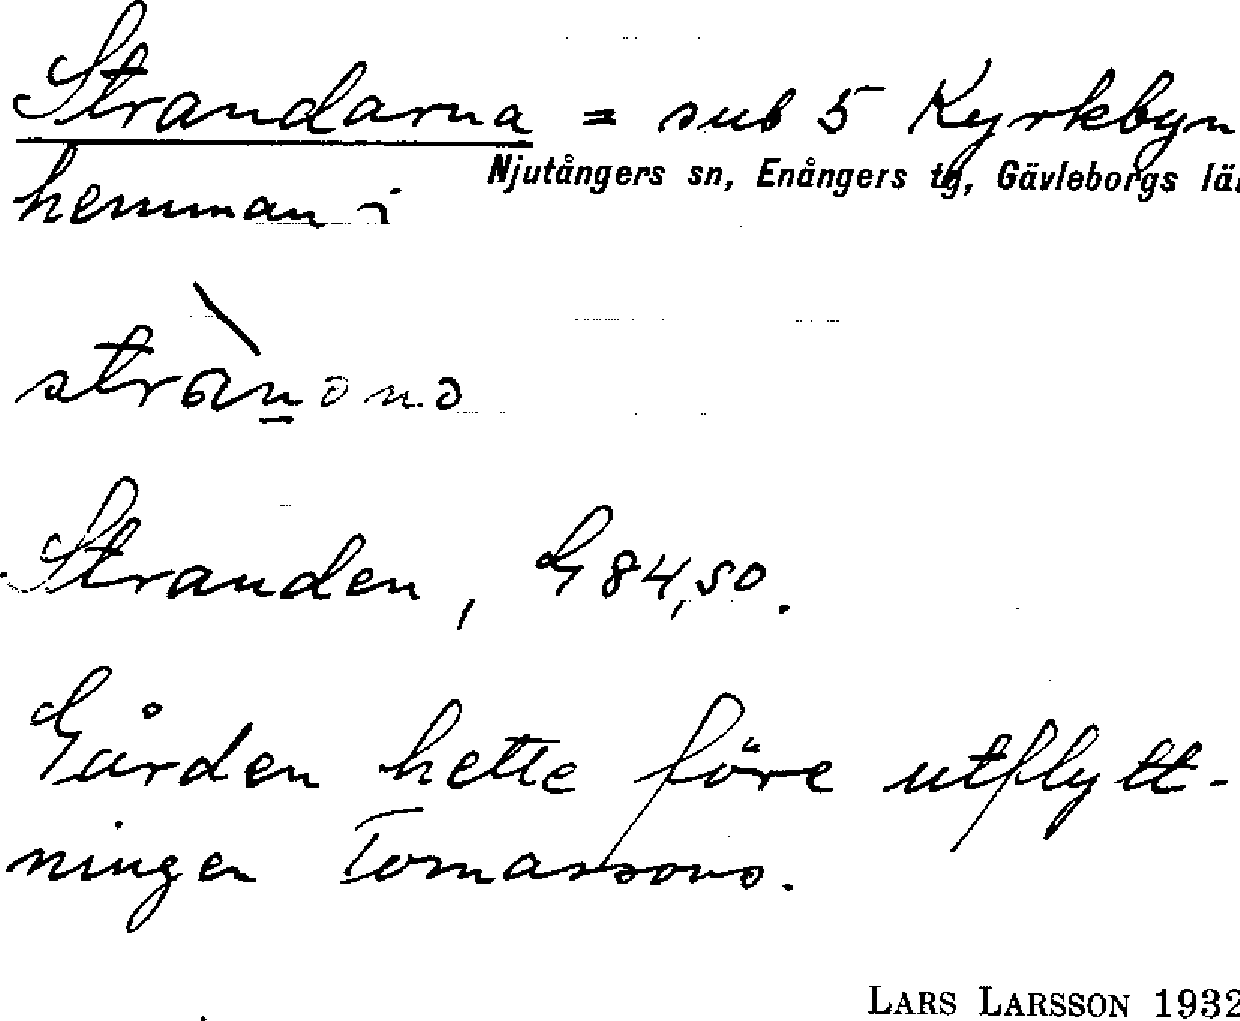 Strandarna = sub 5 Kyrkbyn
Njutångers sn, Enångers tg, Gävleborgs lä
hemman i
Stranden, G 84,50.
Gården hette före utflytt-
ningen Tomassons.
LARS LARSSON 1932